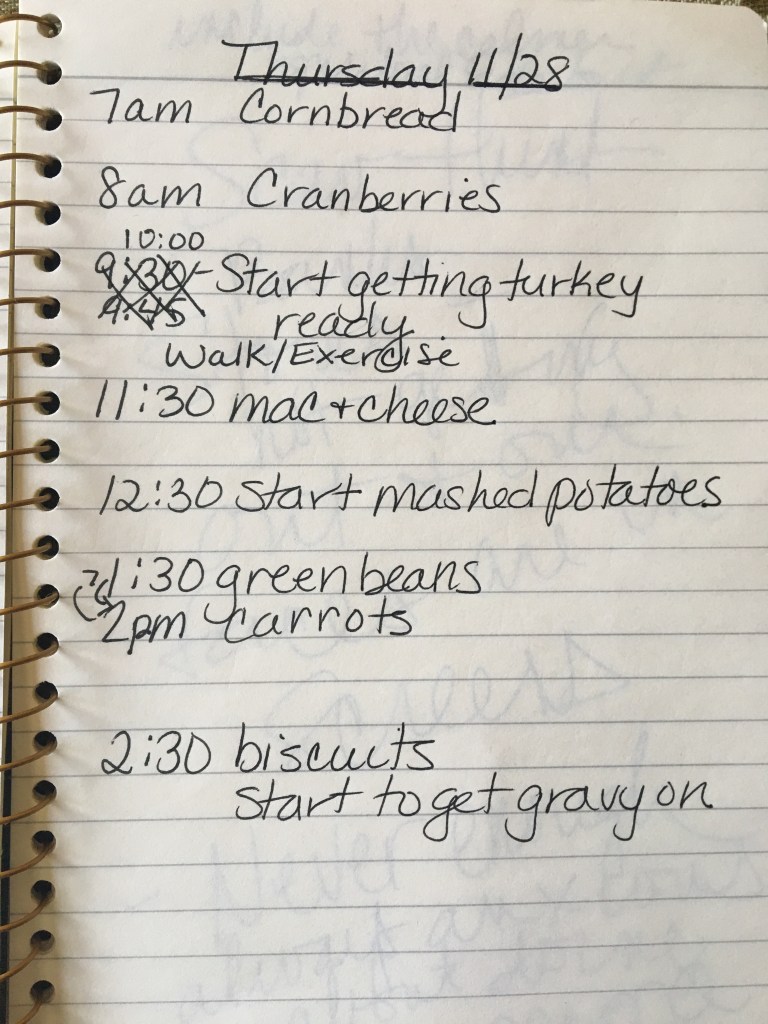 Thursday 11/28
7am Cornbread
8am Cranberries
10:00
9:30 - Start getting turkey
9:45 ready
Walk/Exercise
11:30 mac + cheese
12:30 Start mashed potatoes
1:30 green beans
2pm carrots
2:30 biscuits
Start to get gravy on